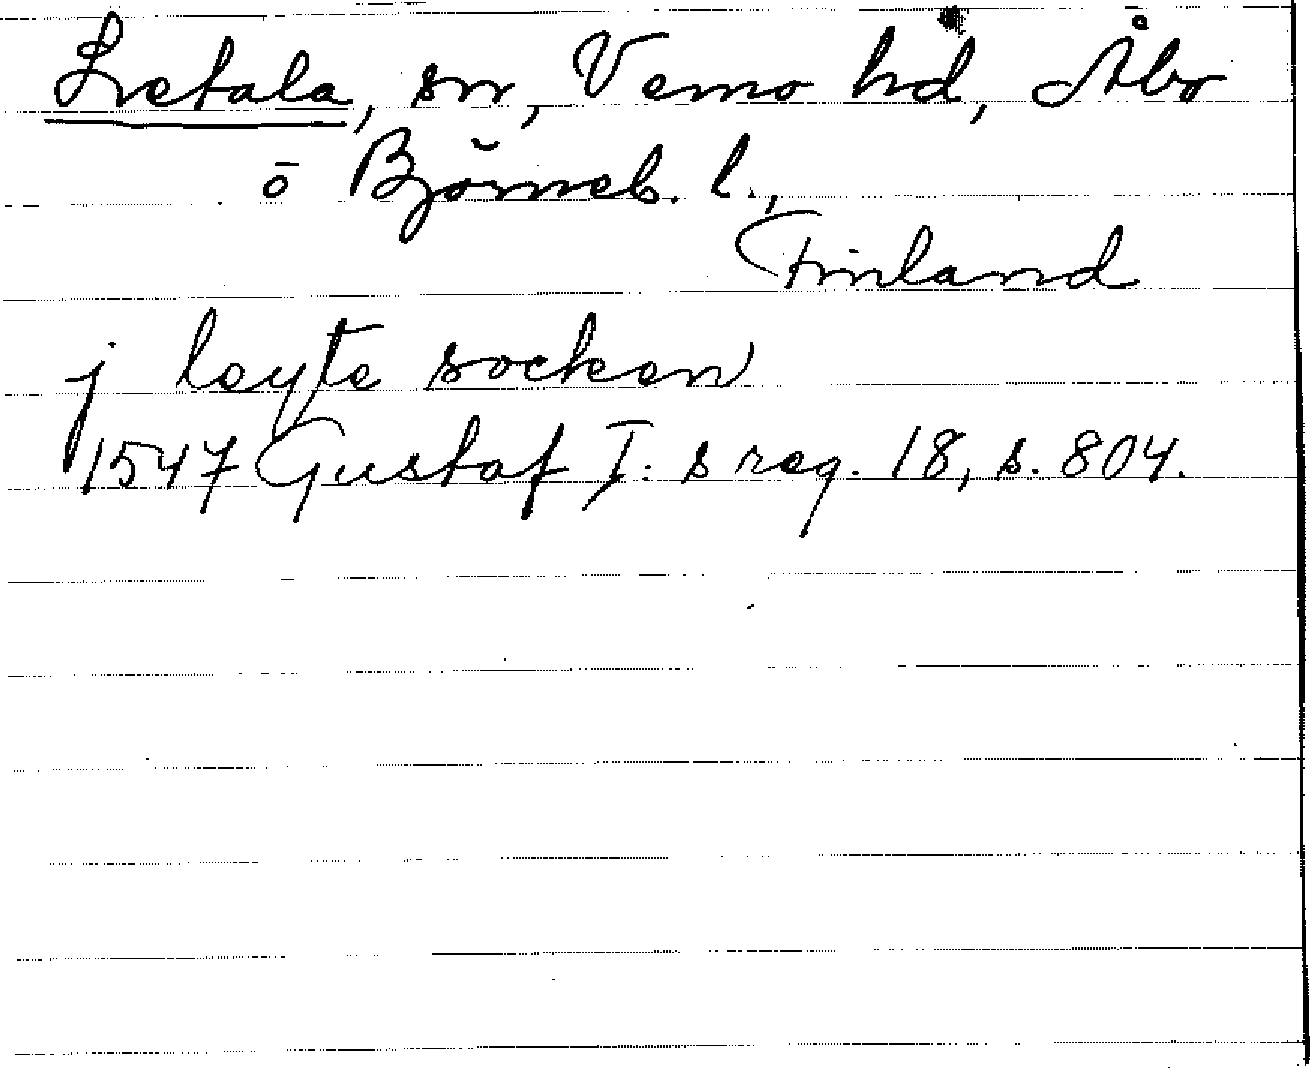 Letala, sn, Vemo hd, Åbo
o Björneb. l.,
Finland
j leyte socken
1547 Gustaf I:s reg. 18, s. 804.